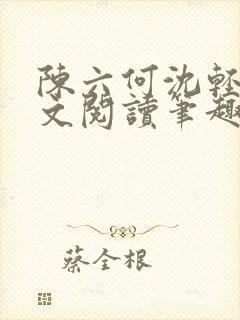 陳六何沈輕
文閱讀筆趣
蔡全根